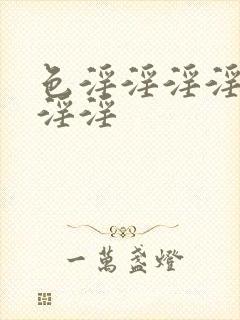 色淫淫淫淫
淫淫
一萬盞燈